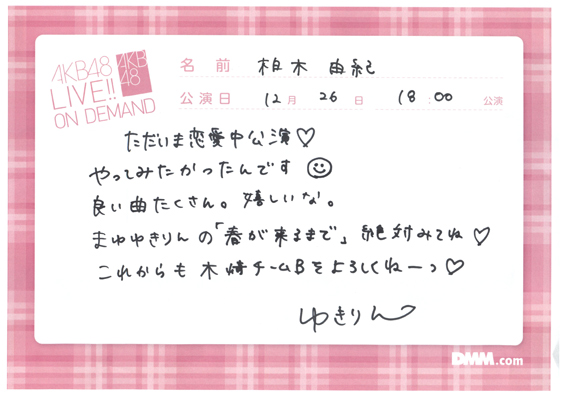 AKB48
LIVE!!
ON DEMAND
AKB
48
名 前 柏木 由紀
公演日 12月 26日 18:00 公演
ただいま恋愛中公演♡
やってみたかったんです☺
良い曲たくさん。嬉しいな。
まゆゆきりんの「春が来るまで」絶対みてね♡
これからも 木﨑チームBをよろしくねーっ♡
ゆきりん
DMM.com